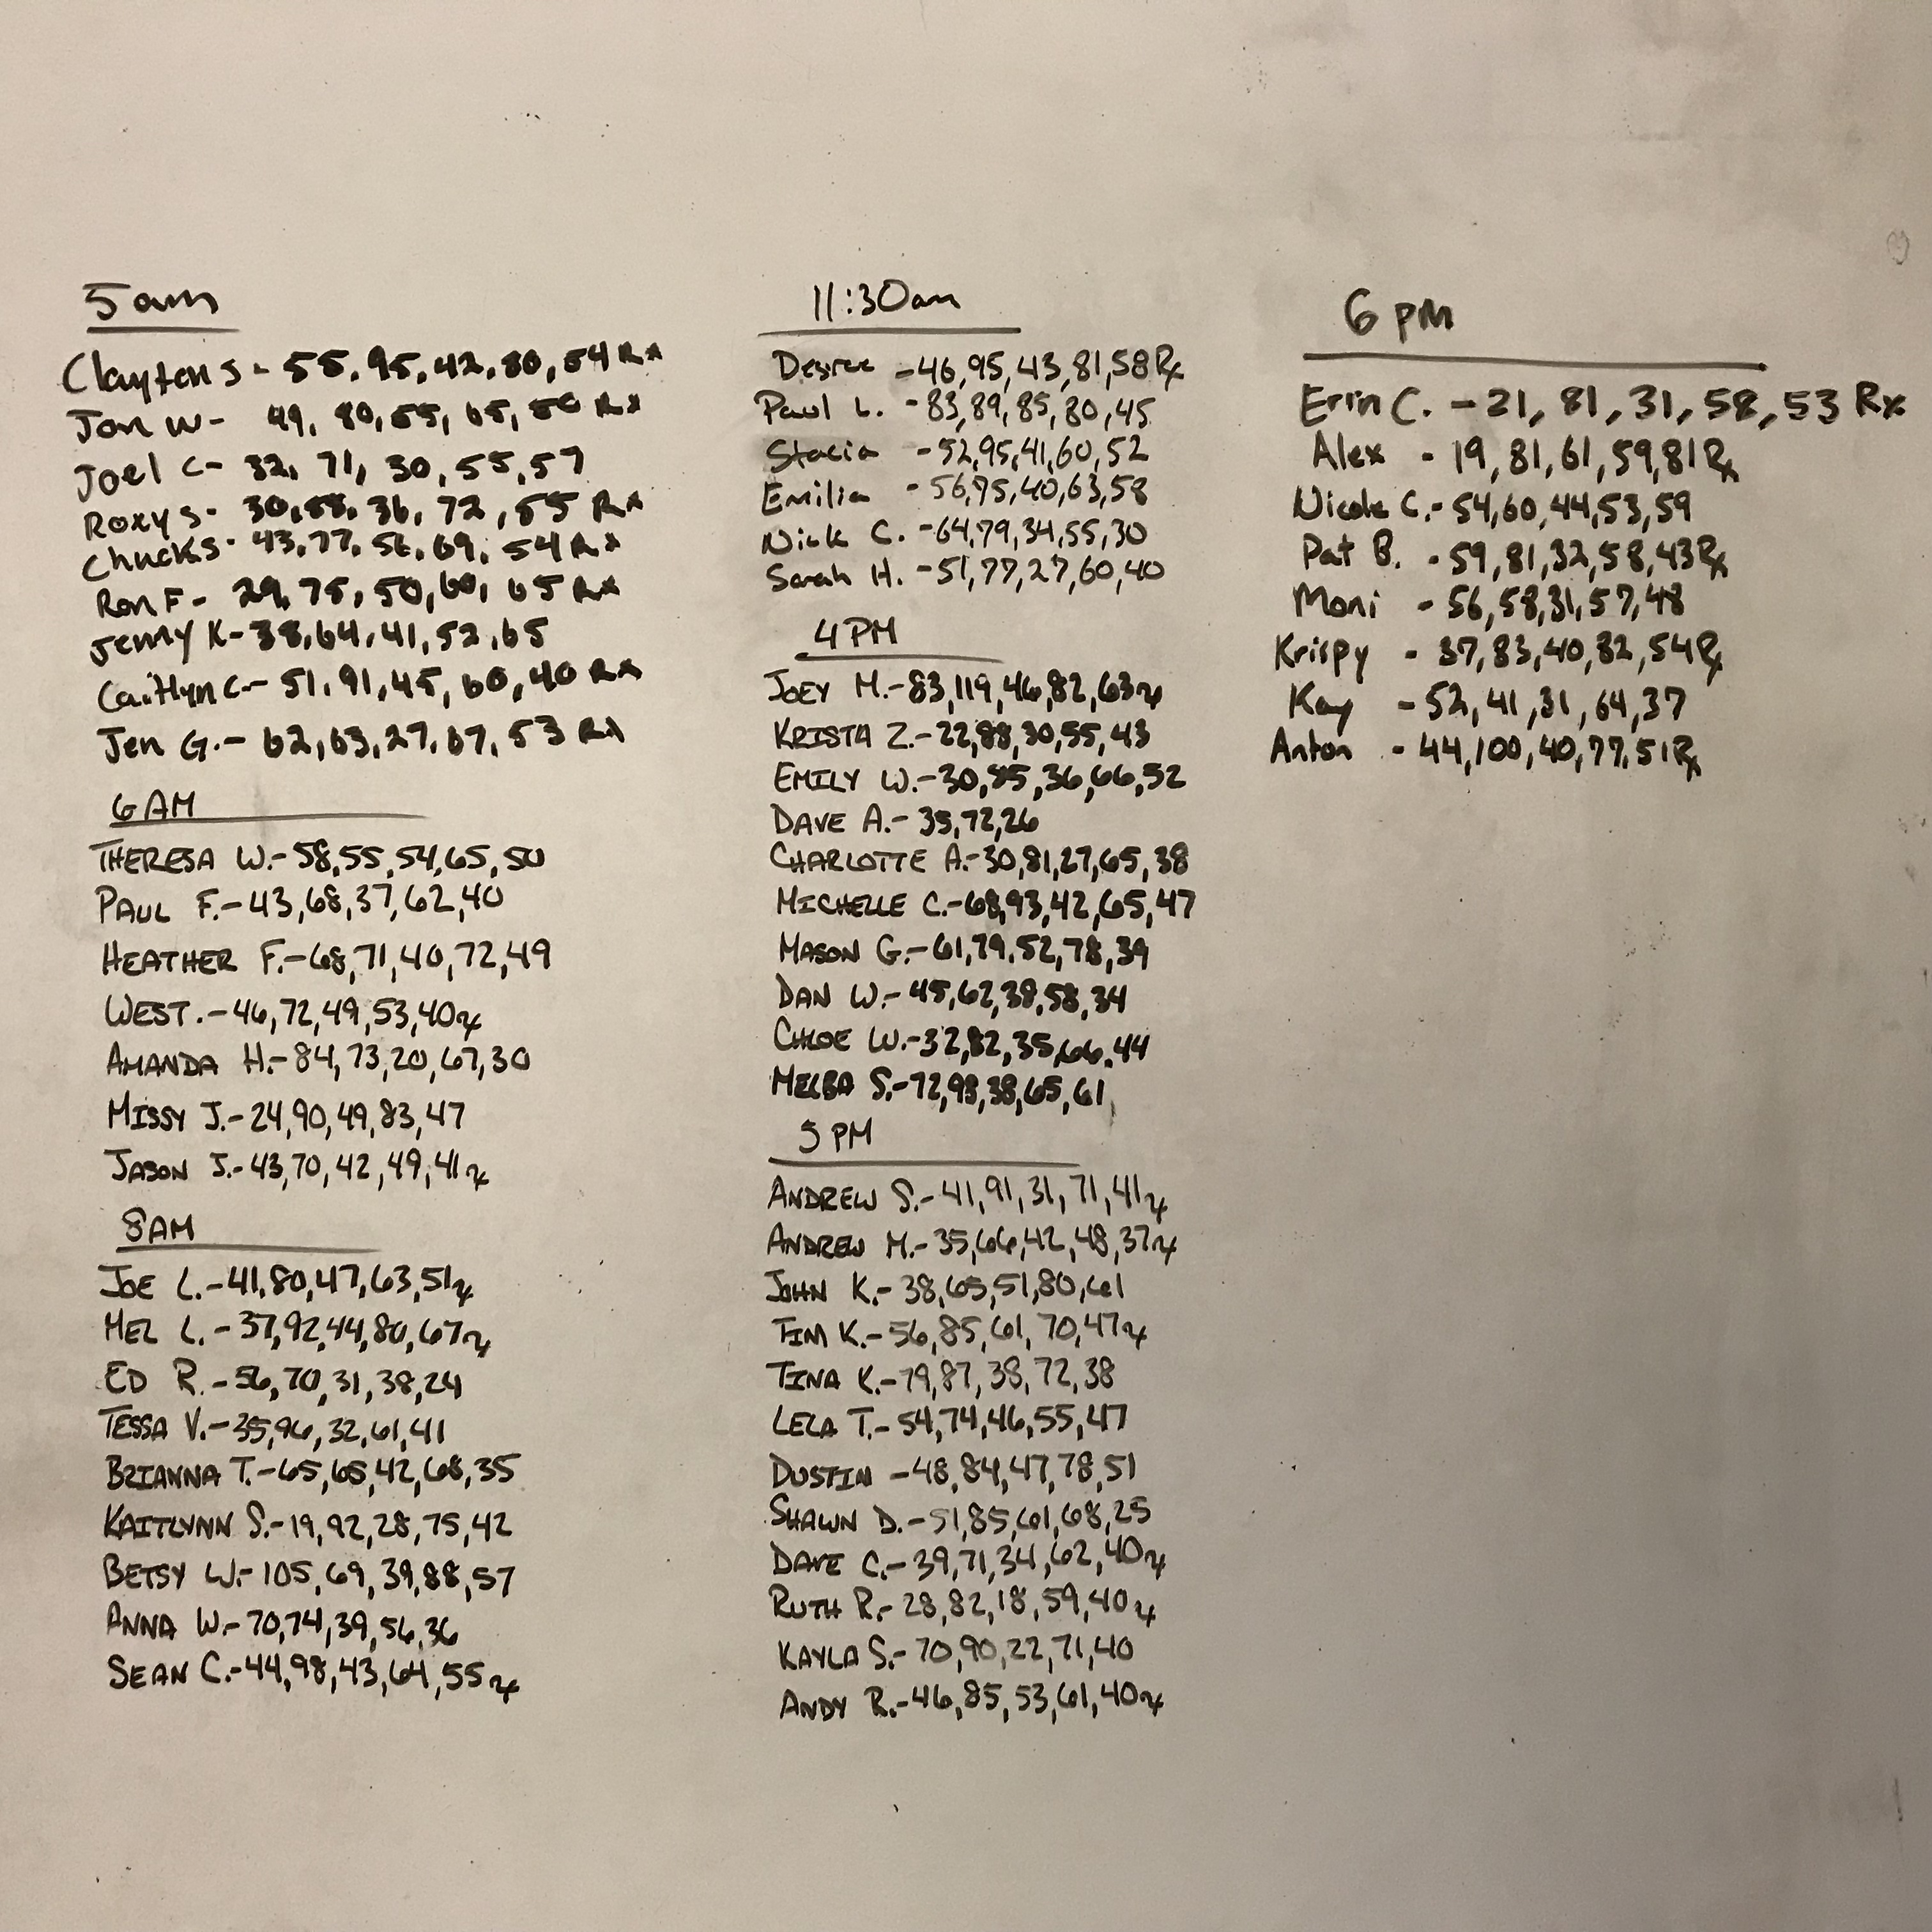 5am
Clayton S - 55, 95, 42, 80, 54 Rx
Jon W - 49, 80, 55, 65, 50 Rx
Joel C - 32, 71, 30, 55, 57
Roxy S - 30, 58, 36, 72, 55 Rx
Chuck S - 43, 77, 56, 69, 54 Rx
Ron F - 29, 75, 50, 60, 65 Rx
Jenny K - 38, 64, 41, 52, 65
Caitlyn C. - 51, 91, 45, 60, 40 Rx
Jen G. - 62, 63, 27, 67, 53 Rx
6AM
THERESA W. - 58, 55, 54, 65, 50
PAUL F. - 43, 68, 37, 62, 40
HEATHER F. - 68, 71, 40, 72, 49
WEST. - 46, 72, 49, 53, 40 rx
AMANDA H. - 84, 73, 20, 67, 30
MISSY J. - 24, 90, 49, 83, 47
JASON J. - 43, 70, 42, 49, 41 rx
8AM
JOE L. - 41, 80, 47, 63, 51 rx
MEL L. - 37, 92, 44, 80, 67 rx
ED R. - 56, 70, 31, 38, 24
TESSA V. - 35, 96, 32, 61, 41
BRIANNA T. - 65, 65, 42, 68, 35
KAITLYNN S. - 19, 92, 28, 75, 42
BETSY W. - 105, 69, 39, 88, 57
ANNA W. - 70, 74, 39, 56, 36
SEAN C. - 44, 98, 43, 64, 55 rx
11:30am
Desree - 46, 95, 43, 81, 58 Rx
Paul L. - 83, 89, 85, 80, 45
Stacia - 52, 95, 41, 60, 52
Emilia - 56, 75, 40, 63, 58
Nick C. - 64, 79, 34, 55, 30
Sarah H. - 51, 77, 27, 60, 40
4PM
JOEY M. - 83, 119, 46, 82, 63 rx
KRISTA Z. - 22, 88, 30, 55, 43
EMILY W. - 30, 85, 36, 66, 52
DAVE A. - 35, 72, 26
CHARLOTTE A. - 30, 81, 27, 65, 38
MICHELLE C. - 68, 93, 42, 65, 47
MASON G. - 61, 79, 52, 78, 39
DAN W. - 45, 62, 38, 58, 34
CHLOE W. - 32, 82, 35, 66, 44
MELBA S. - 72, 98, 38, 65, 61
5 PM
ANDREW S. - 41, 91, 31, 71, 41 rx
ANDREW M. - 35, 66, 42, 48, 37 rx
JOHN K. - 38, 65, 51, 80, 61
TIM K. - 56, 85, 61, 70, 47 rx
TINA K. - 79, 87, 38, 72, 38
LEZA T. - 54, 74, 46, 55, 47
DUSTIN - 48, 84, 47, 78, 51
SHAWN D. - 51, 85, 61, 68, 25
DAVE C. - 39, 71, 34, 62, 40 rx
RUTH R. - 28, 82, 18, 59, 40 rx
KAYLA S. - 70, 90, 22, 71, 40
ANDY R. - 46, 85, 53, 61, 40 rx
6 pm
Errin C. - 21, 81, 31, 58, 53 Rx
Alex - 19, 81, 61, 59, 81 Rx
Nicole C. - 54, 60, 44, 53, 59
Pat B. - 59, 81, 32, 58, 43 Rx
Moni - 56, 58, 31, 57, 48
Krispy - 37, 83, 40, 82, 54 Rx
Kay - 52, 41, 31, 64, 37
Anton - 44, 100, 40, 77, 51 Rx